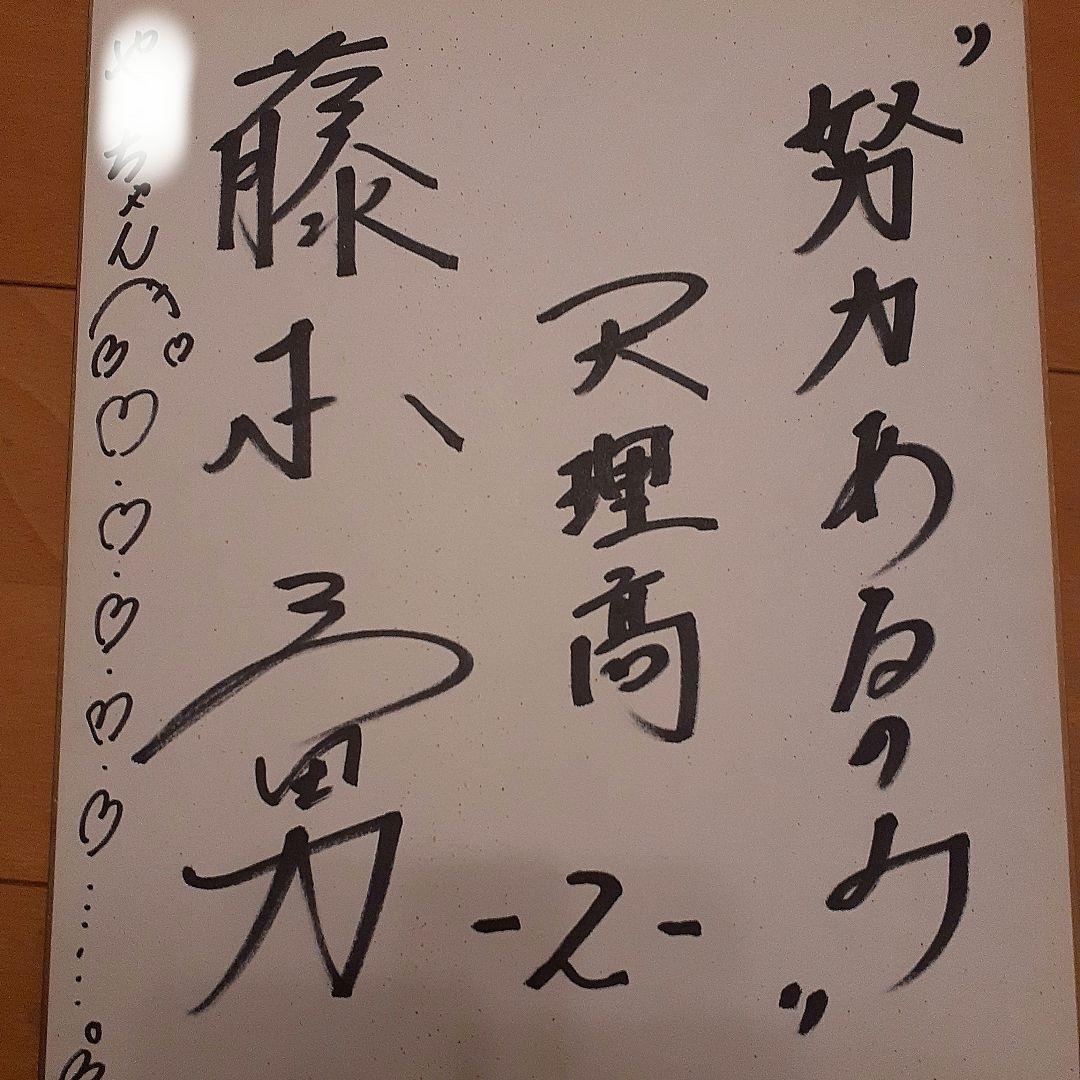 〃努力あるのみ〃
天理高
藤本勇
ちゃんへ